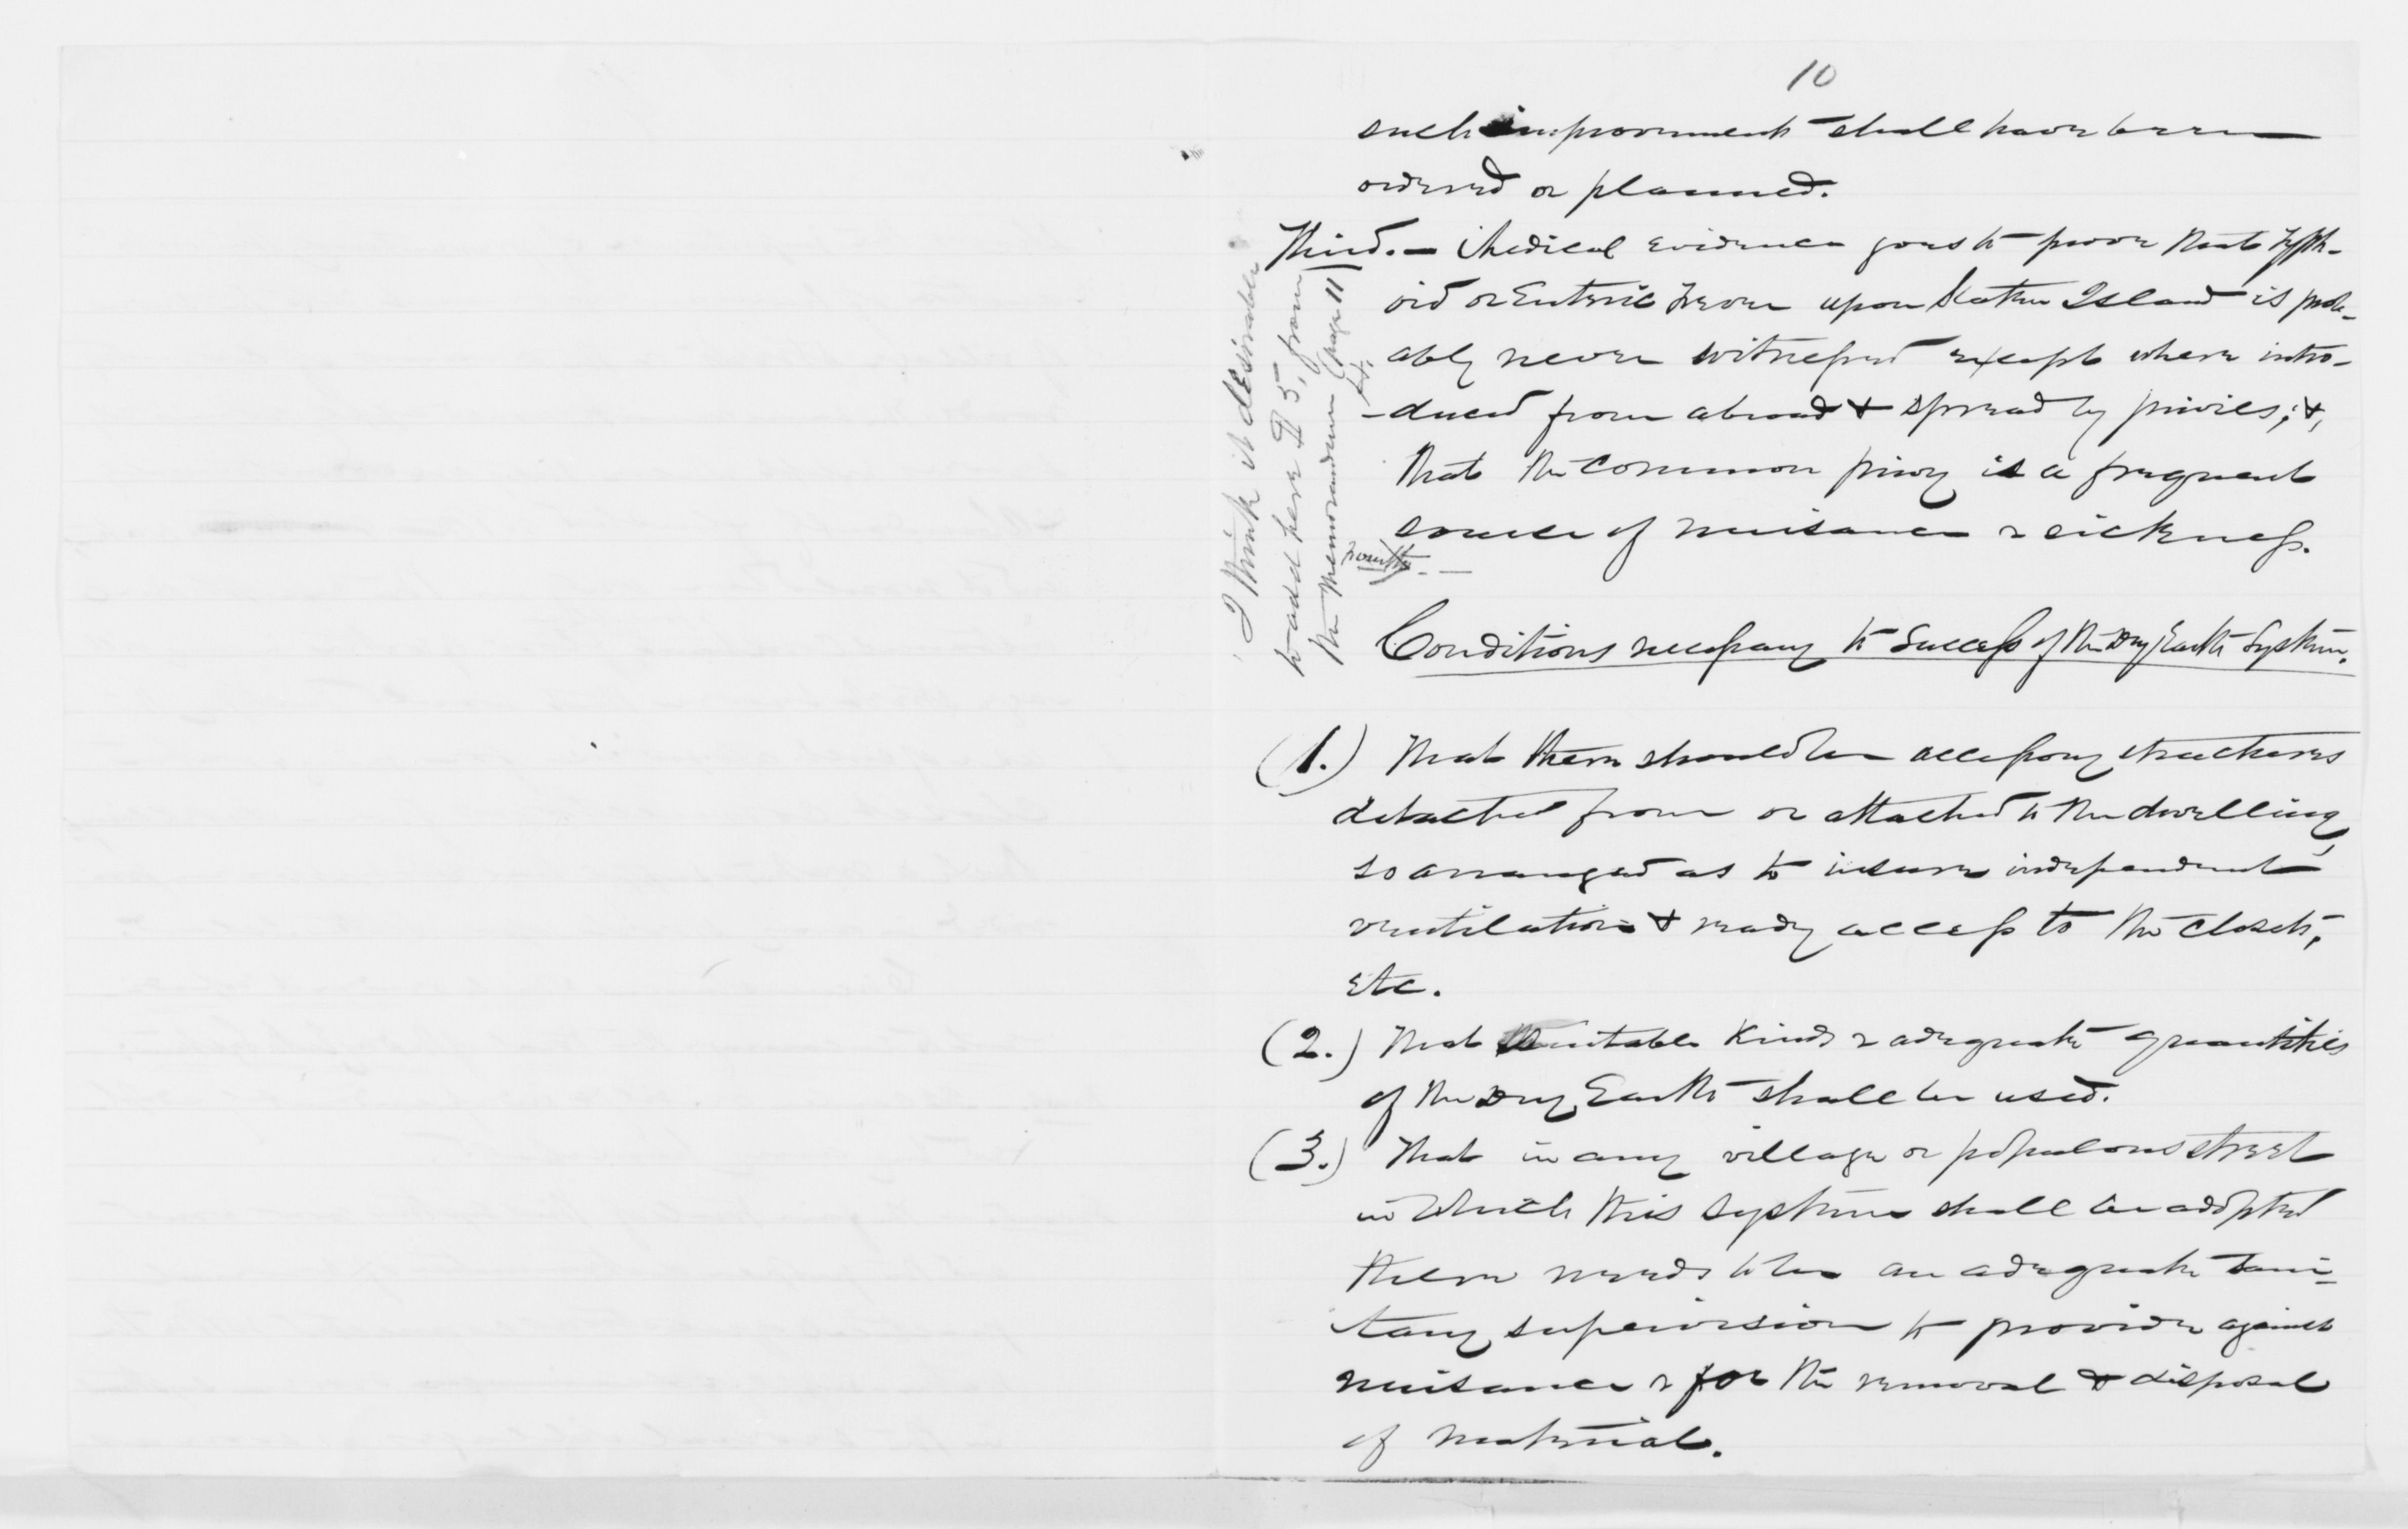 10
such improvement shall have been
ordered or planned.
Third. – Medical evidence goes to prove that Typh-
oid or Enteric Fever upon Staten Island is prob-
ably never witnessed except where intro-
-duced from abroad & spread by privies; &,
that the common privy is a frequent
source of nuisance & sickness.
Fourth. —
I think it desirable
to add here II 5, from
the Memorandum (page 11
Conditions necessary to Success of the Dry Earth System.
(1.) That there should be accessory structures
detached from or attached to the dwelling,
so arranged as to insure independent
ventilation & ready access to the closets,
etc.
(2.) That suitable kinds & adequate quantities
of the Dry Earth shall be used.
(3.) That in any village or populous street
in which this system shall be adopted
there needs to be an adequate sani-
tary supervision to provide against
nuisance & for the removal & disposal
of material.